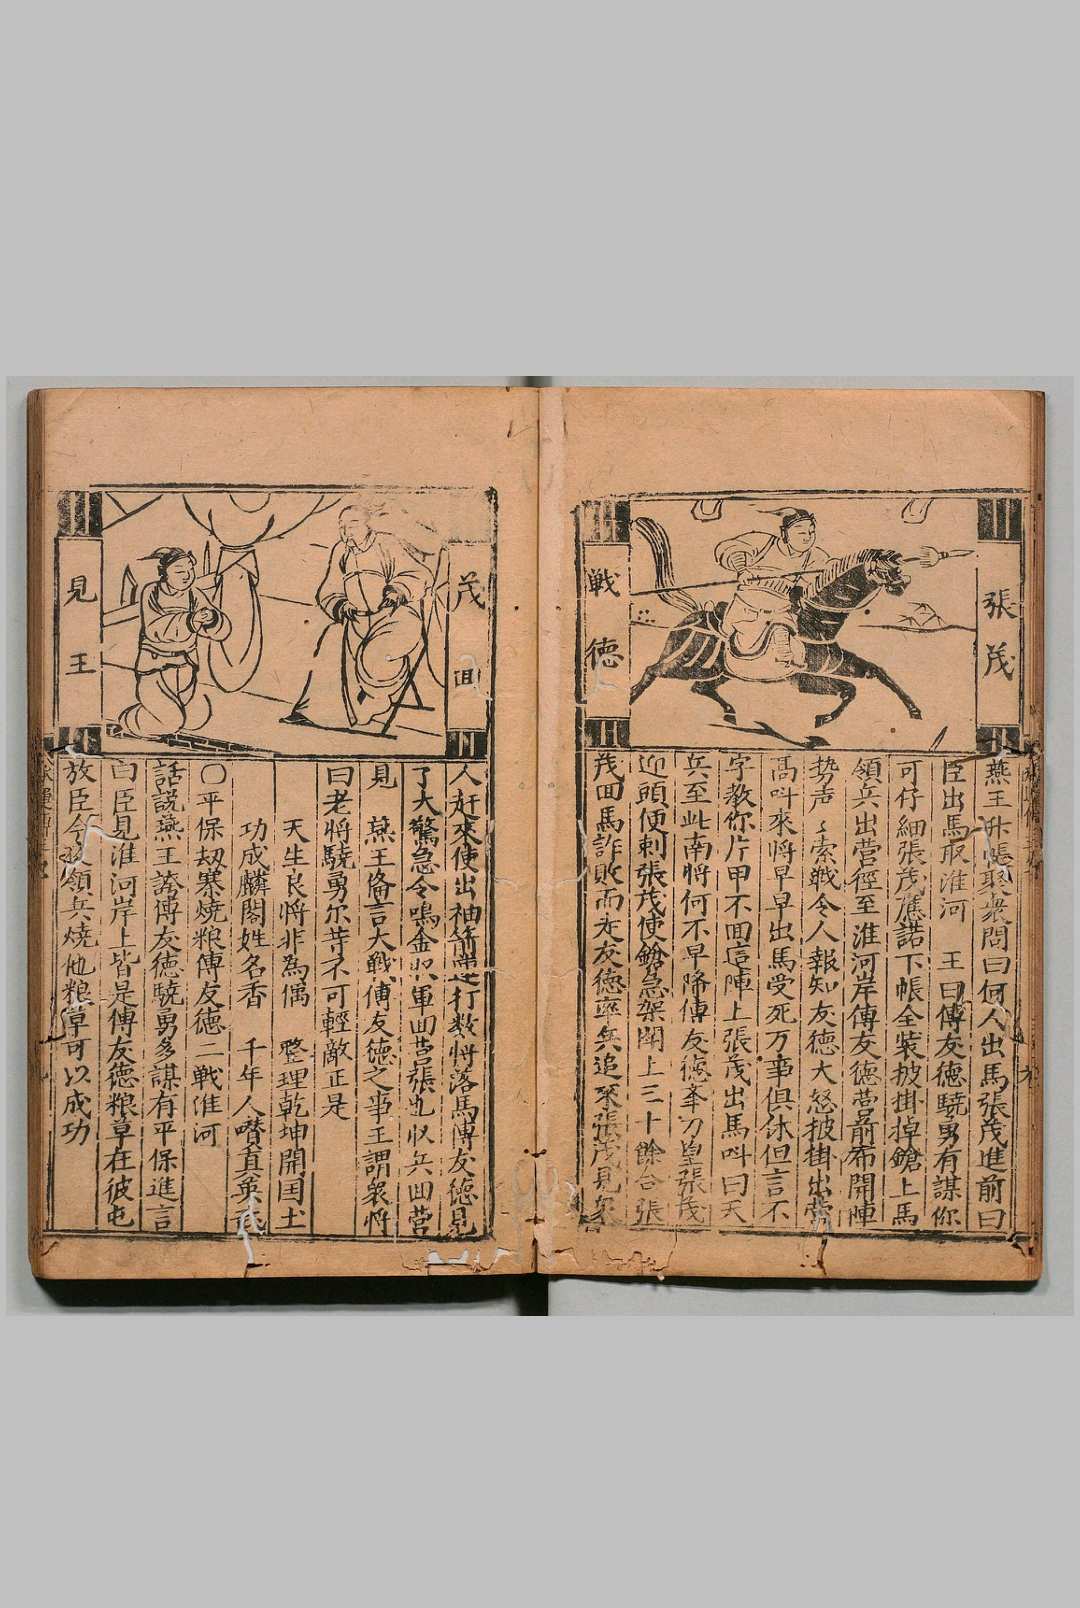 張茂
戦德
燕王升帳聚衆問曰何人出馬張茂進前曰
臣出馬取淮河　王曰傅友德驍勇有謀你
可仔細張茂應諾下帳全装披掛掉鎗上馬
領兵出营徑至淮河岸傅友德营前布開陣
势声〻索戦令人報知友德大怒披掛出营
高叫來將早早出馬受死万事俱休但言不
字教你片甲不回這陣上張茂出馬叫曰天
兵至此南將何不早降傅友德
迎頭便刺張茂使鎗急架閗上三十餘合張
茂回馬詐敗而走友德率兵追來張茂見衆
茂回
見王
人赶來使出袖箭打数將落馬傅友德見
了大驚急令鳴金収軍回营張茂収兵回营
見　燕王俻言大戦傅友德之事王謂衆將
曰老將驍勇尔等不可輕敵正是
天生良將非為偶　整理乾坤開囯土
功成麟閣姓名香　千年人噆真英武
〇平保刼寨燒粮傅友德二戦淮河
話說燕王誇傅友德驍勇多謀有平保進言
曰臣見淮河岸上皆是傅友德粮草在彼屯
放臣今夜領兵燒他粮草可以成功